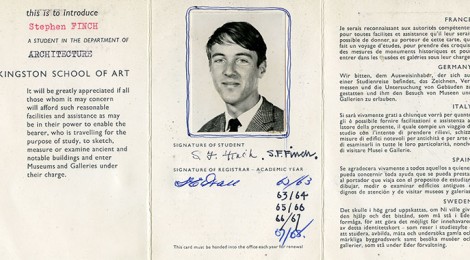 this is to introduce
Stephen FINCH
A STUDENT IN THE DEPARTMENT OF
ARCHITECTURE
KINGSTON SCHOOL OF ART
It will be greatly appreciated if all
those whom it may concern
will afford such reasonable
facilities and assistance as may
be in their power to enable the
bearer, who is travelling for the
purpose of study, to sketch,
measure or examine ancient and
notable buildings and enter
Museums and Galleries under
their charge.
SIGNATURE OF STUDENT
S.F. Finch. S.F. Finch.
SIGNATURE OF REGISTRAR - ACADEMIC YEAR
62/63
63/64
65/66
66/67
67/68.
This card must be handed into the office each year for renewal
FRANCE
Je serais reconnaissant aux autorités compétentes
pour toutes facilités et assistance qu'il leur serait
possible de donner, au porteur de cette carte, qui
fait un voyage d'études, pour prendre des croquis
des mesures de monuments historiques et pour
entrer dans les musées et galéries sous leur charge.
GERMANY
Wir bitten, dem Ausweisinhabr, der sich auf
einer Studienreise befindet, das Zeichnen, Ver-
messen und Untersuchung von Gebäuden zu
gestatten und ihm den Besuch von Museen und
Gallerien zu erlauben.
ITALY
Si sarà vivamente grati a chiunque vorrà per quanto
gli è possibile fornire facilitazioni e assistenza al
latore della presente, il quale compie un viaggio di
studio con l'intento di prendere rilievi, schizzi
misure di edifici notevoli per antichità e per arte e
di esaminarli in tutte le loro particolarità, nonchè
di visitare Musei e Gallerie.
SPAIN
Se agradecera vivamente a todos aquellos a quienes
pueda concernir toda ayuda que se pueda prestar
al portador que viaja con el proposito de estudiar
dibujar, medir o examinar edificios antiguos y
dignos de atención y de visitar museos y galerias.
SWEDEN
Det skulle i hög grad uppskattas, om Ni ville giva
den hjälp och det bistånd, som må stå i Eder
förmåga, för att göra det möjligt för innehavaren
av detta identitetskort - som reser i studiesyfte -
att studera, avbilda, mäta och undersöka gamla och
märkliga byggnadsverk samt besöka muséer och
gallerier, som stå under Eder förvaltning.